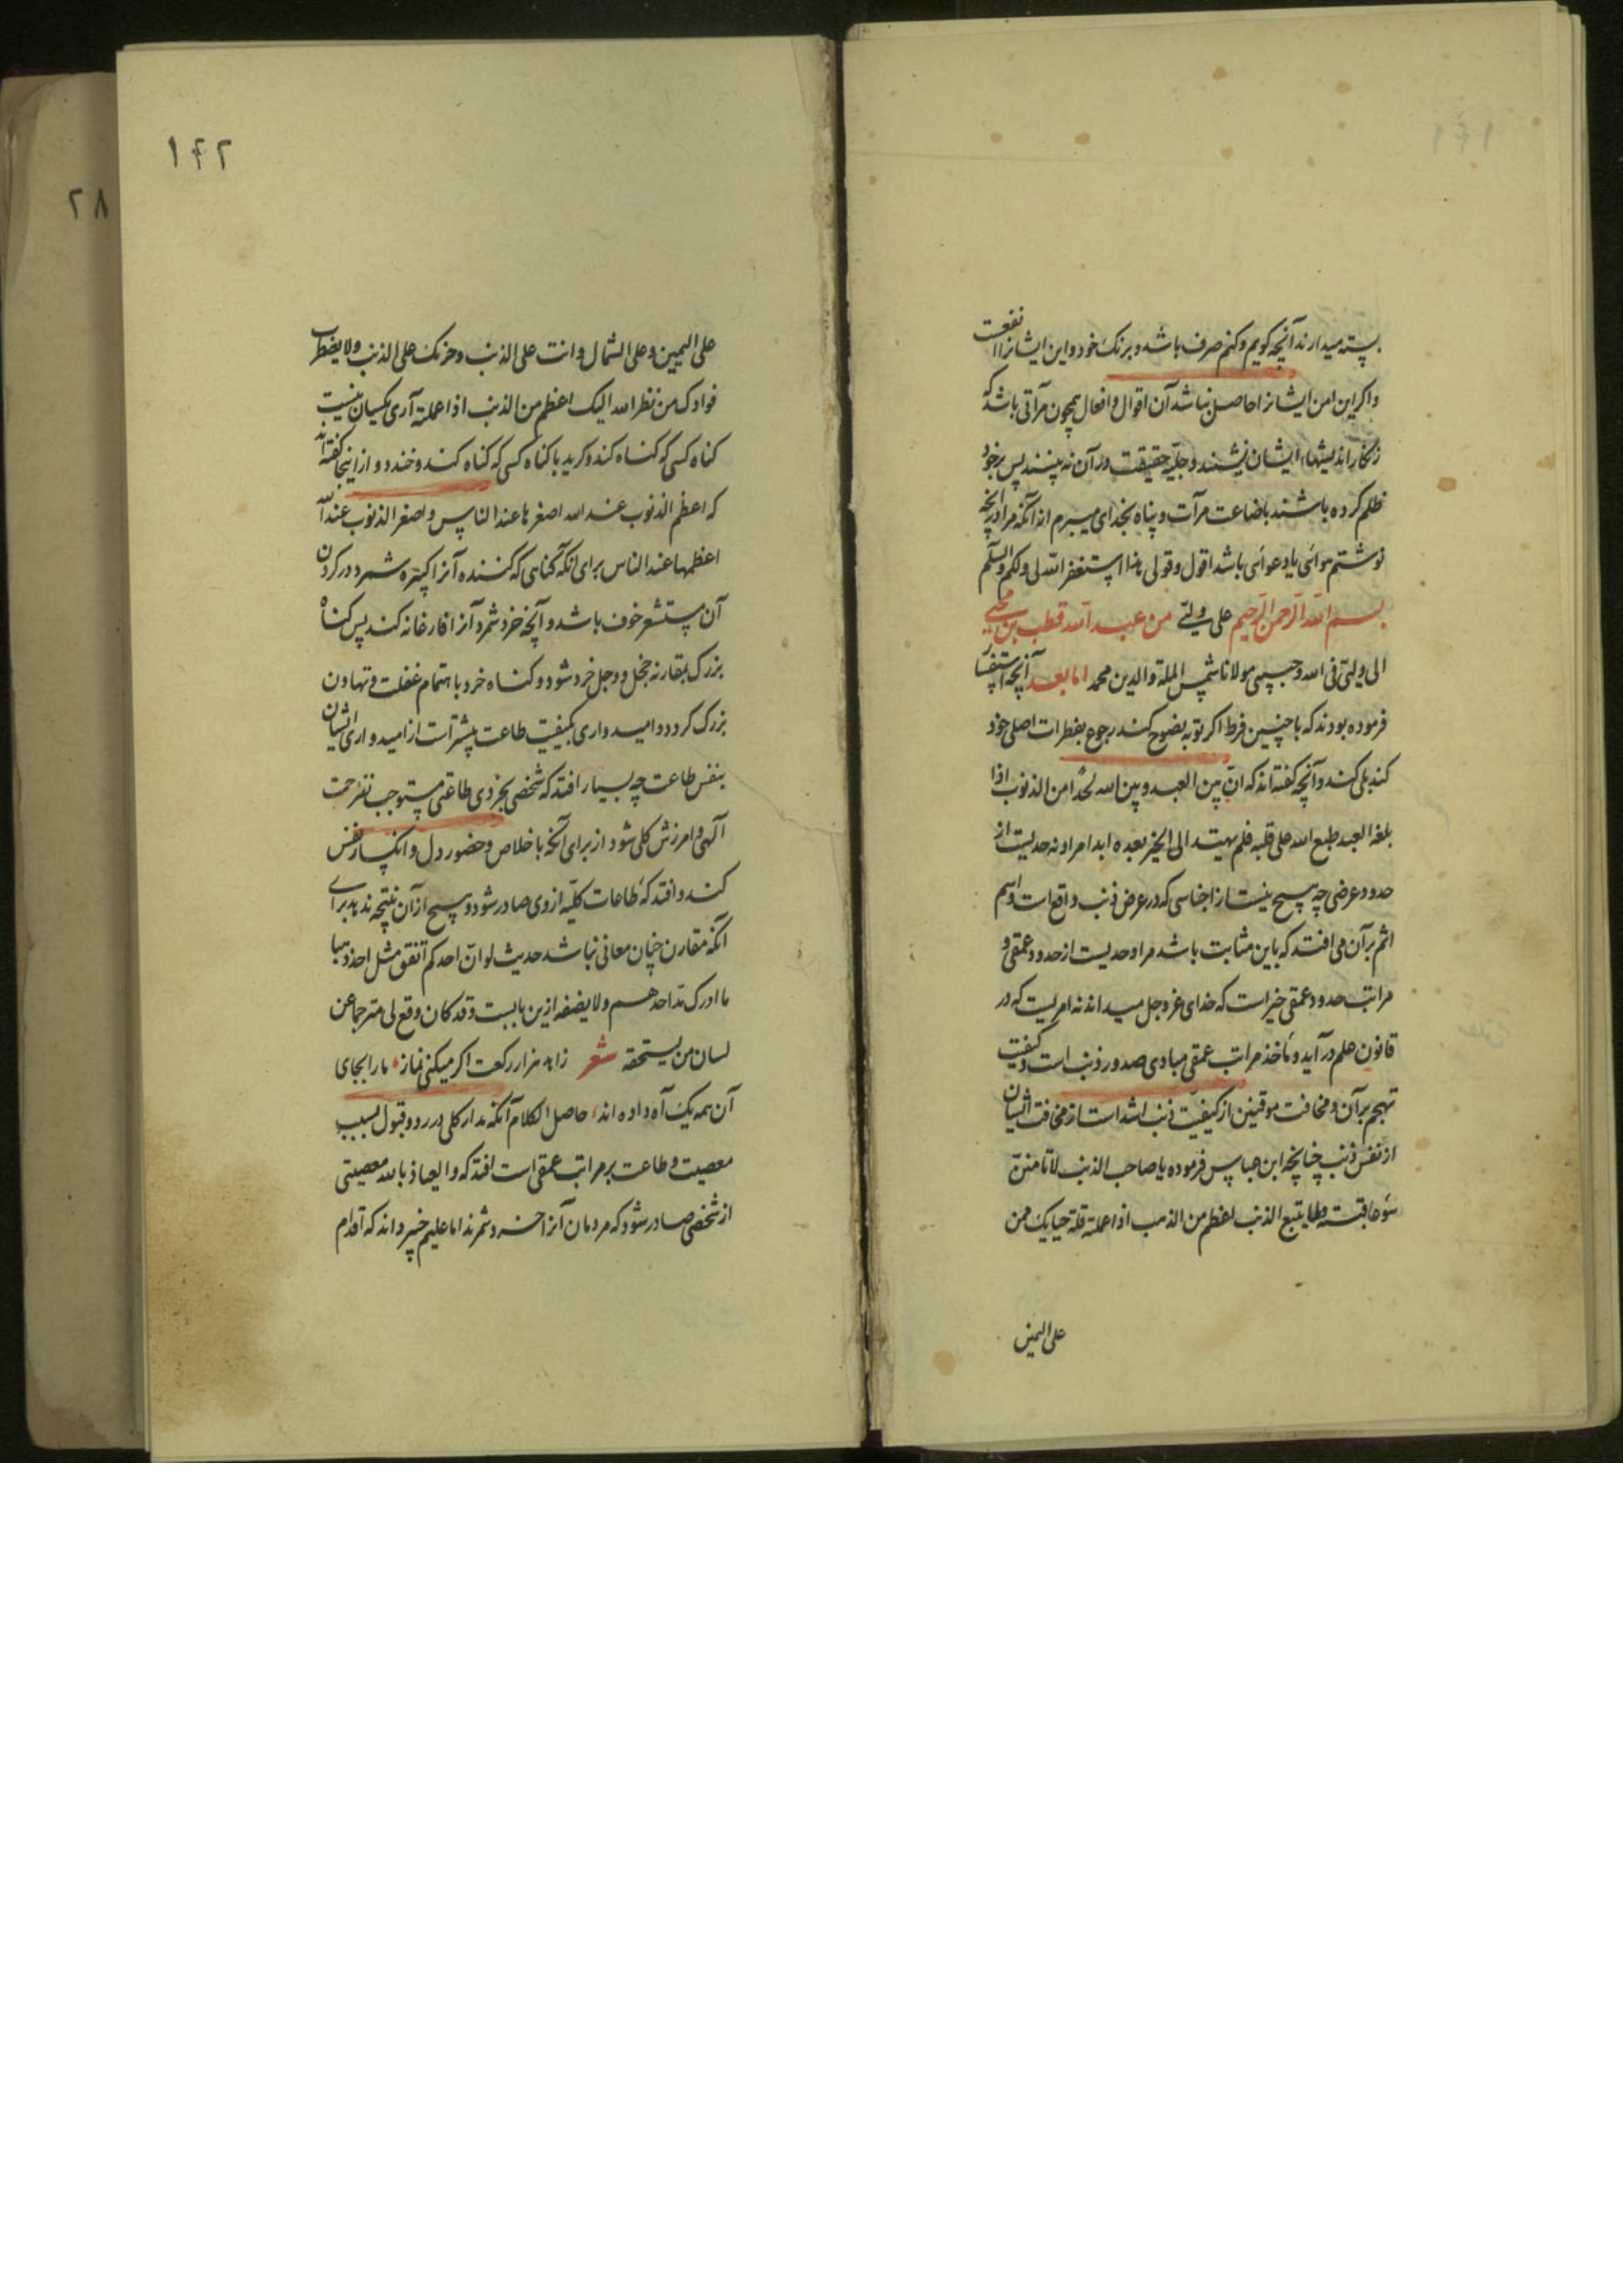 بسته میدارند آنچه کویم و کنم صرف باشد و برنک خود و این ایشانرا نفعست
و اکر این امن ایشانرا حاصل نباشد آن اقوال و افعال همچون مرآتی باشد که
زنکار اندیشهاء ایشان نشیند و جلیّه حقیقت در آن نه بینند پس بر خود
ظلم کرده باشند باضاعت مرآت و پناه بخدای میبرم از آنکه مرا در آنچه
نوشتم هوائی یا دعوائی باشد اقول و قولی هذا استغفر الله لی و لکم والسلم
بسم الله الرحمن الرحیم علی ولیّے من عبد الله قطب بن محیی
الی ولیّی فی الله و حبیبی مولانا شمس الملة والدین محمد اما بعد آنچه استفسار
فرموده بودند که با چنین فرط اکر توبه نضوح کند رجوع بفطرات اصلی خود
کند بلی کند و آنچه کفته اند که انّ بین العبد و بین الله لحدّا من الذنوب اذا
بلغه العبد طبع الله علی قلبه فلم یهتد الی الخیر بعده ابدا مراد نه حدیست از
حدود عرضی چه هیچ نیست از اجناسی که در عرض ذنب واقع است و اسم
اثم بر آن می افتد که باین مثابت باشد مراد حدیست از حدود عمقی و
مراتب حدود عمقی خیر است که خدای عز و جل میداند نه امریست که در
قانون علم در آید و مأخذ مراتب عمقی مبادی صدور ذنب است و کیفیت
تهجم بر آن و مخافت موقنین از کیفیّت ذنب اشد است از مخافت ایشان
از نفس ذنب چنانچه ابن عباس فرموده یا صاحب الذنب لا تامننّ
سوء عاقبته و لما یتبع الذنب اعظم من الذنب اذا عملته قلة حیایک ممن
علی الیمین
۱۴۲
۲۸
علی الیمین و علی الشمال و انت علی الذنب و حزنک علی الذنب و لا یضطرب
فوادک من نظر الله الیک اعظم من الذنب اذا عملته آری یکسان نیست
کناه کسی که کناه کند و کرید با کناه کسی که کناه کند و خندد و از اینجا کفته اند
که اعظم الذنوب عند الله اصغرها عند الناس و اصغر الذنوب عند الله
اعظمها عند الناس برای آنکه کناهی که کننده آنرا کبیره شمرد در کردن
آن مستشعر خوف باشد و آنچه خرد شمرد آنرا فارغانه کند پس کناه
بزرک بمقارنه خجل و وجل خرد شود و کناه خرد با هتمام غفلت و تهاون
بزرک کردد و امیدواری بکیفیت طاعت بیشتر است از امیدواری ایشان
بنفس طاعت چه بسیار افتد که شخصی بجزوی طاعتی مستوجب رحمت
آلهی و امرزش کلی شود از برای آنکه با خلاص و حضور دل و انکسار نفس
کند و افتد که طاعات کلیّه از وی صادر شود و هیچ از آن نتیجه ندهد برای
آنکه مقارن چنان معانی نباشد حدیث لو انّ احدکم انفق مثل احد ذهبا
ما ادرک مدّ احدهم و لا نصیفه ازین بابست و قد کان وقع لی مترجما عن
لسان من یستحقه شعر زاهد هزار رکعت اکر میکنی نماز، ما را بجای
آن همه یک آه داده اند، حاصل الکلام آنکه مدار کلی در رد و قبول بسبب
معصیت و طاعت بر مراتب عمقی است افتد که والعیاذ بالله معصیتی
از شخصی صادر شود که مردمان آنرا خرد شمرند اما علیم خبیر داند که اقدام